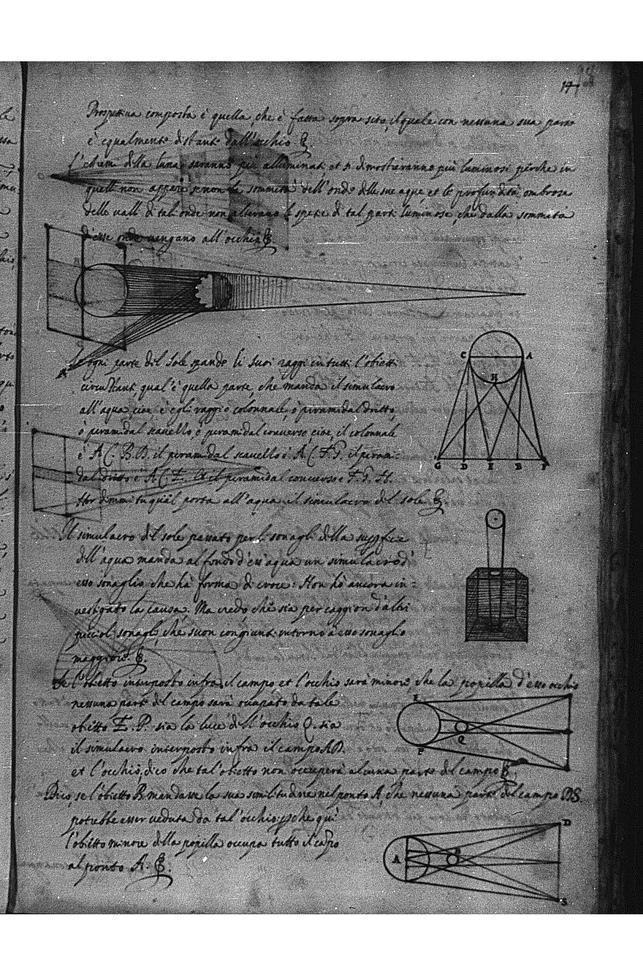 Prospettiva composta è quella che è fatta sopra sito, il quale con nessuna sua parte
è equalmente distante dall'occhio
della luna saranno più alluminati et si dimostraranno più luminosi perche in
quelle non appare se non le sommità dell'onde delle sue aque et le profondità ombrose
delle valli di tal onde non alterano le spetie di tal parti luminose, che dalla sommità
d'esse onde vengano all'occhio
Se ogni parte del sole manda li suoi raggi in tutti l'obietti
circonstanti, qual'è quella parte che manda il simulacro
all'aqua cioè è egli raggio colonnale, o piramidal dritto
o piramidal , o piramidal converso cioe, il colonnale
è A C. B D. il piramidal è A C F G. il piram-
dal dritto è A C E. il piramidal converso è F. G. H.
dimmi tu qual porta all'aqua il simulacro del sole
Il simulacro del sole passato per li sonagli della superficie
dell'aqua manda al fondo d'ess'aqua un simulacro d'
esso sonaglio che hà forma di croce: Non hò ancora in-
vestigato la causa. Ma credo che sia per caggion d'altri
piccioli sonagli che suon congiunti intorno a esso sonaglio
maggiore.
Se l'obietto interposto infra il campo et l'occhio sarà minore, che la popilla d'esso occhio
nessuna parte del campo sarà occupato da tale
obietto E. P. sia la luce dell'occhio Q. sia
il simulacro interposto infra il campo A D.
et l'occhio, dico che tal'obietto non occuperà alcuna parte del campo
Dico, se l'obietto B. mandasse la sua similitudine nel ponto A. che nessuna parte del campo D S.
potrebbe esser veduta da tal'occhio; perche qui
l'obietto minore della popilla occupa tutto il capo
al ponto A.
C A
H
G D E B F
E
P Q
D
A B
S